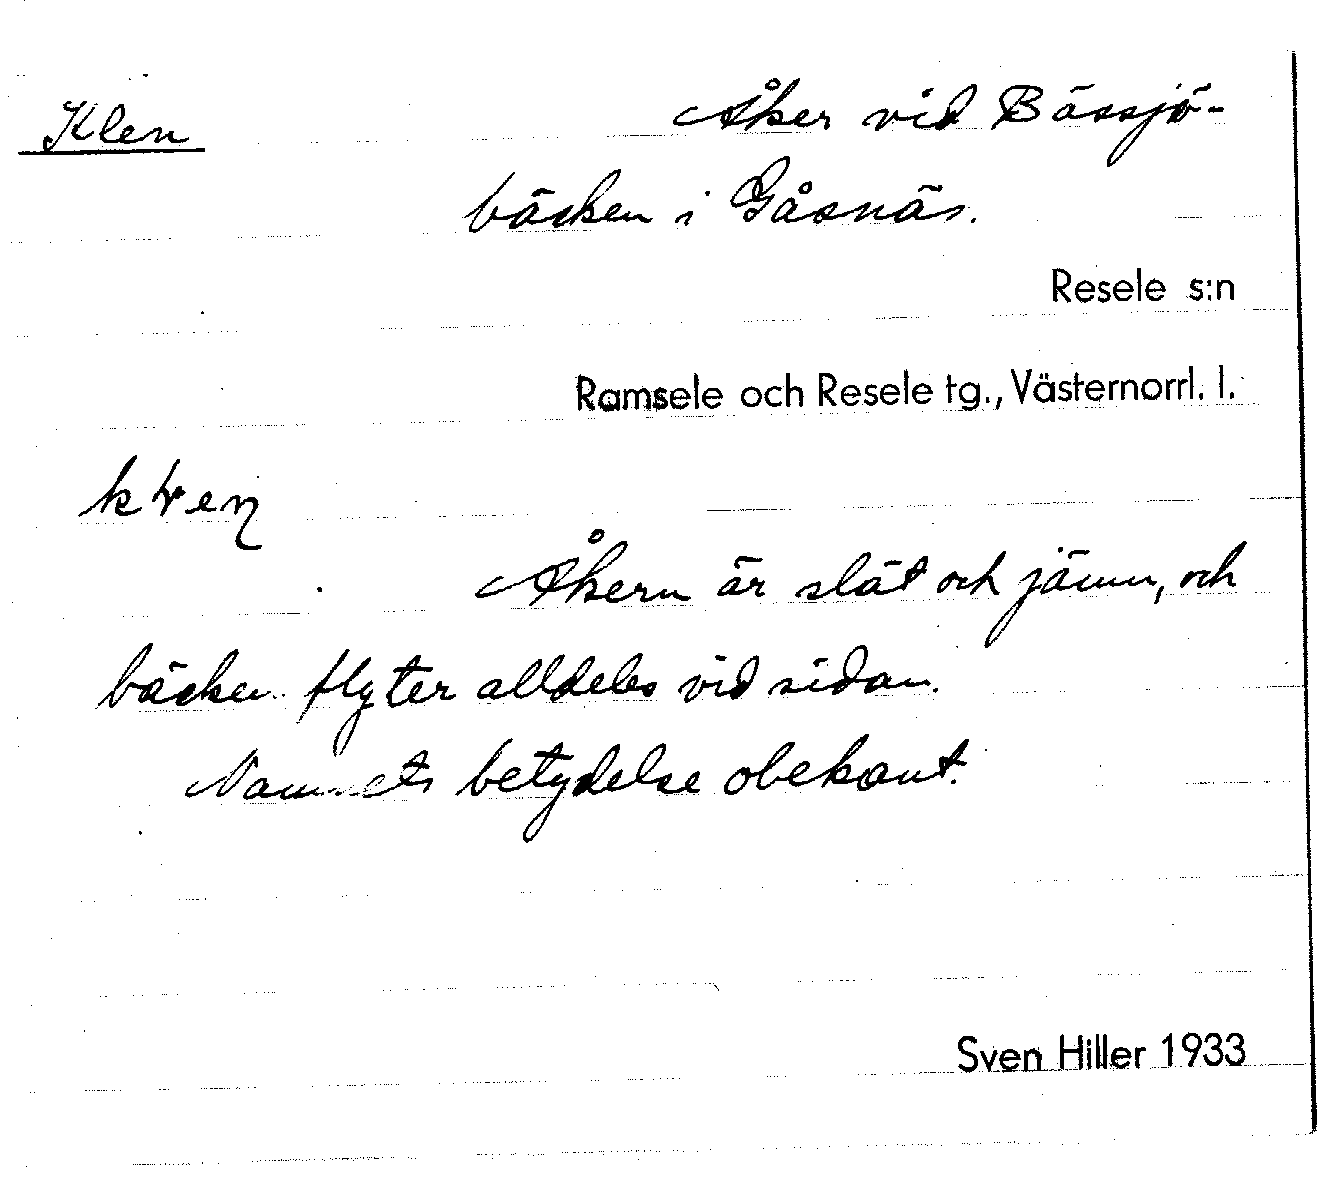 Klen
Åker vid Bässjö-
bäcken i Gåsnäs.
Resele s:n
Ramsele och Resele tg., Västernorrl. l.
Åkern är slät och jämn, och
bäcken flyter alldeles vid sidan.
Namnets betydelse obekant.
Sven Hiller 1933